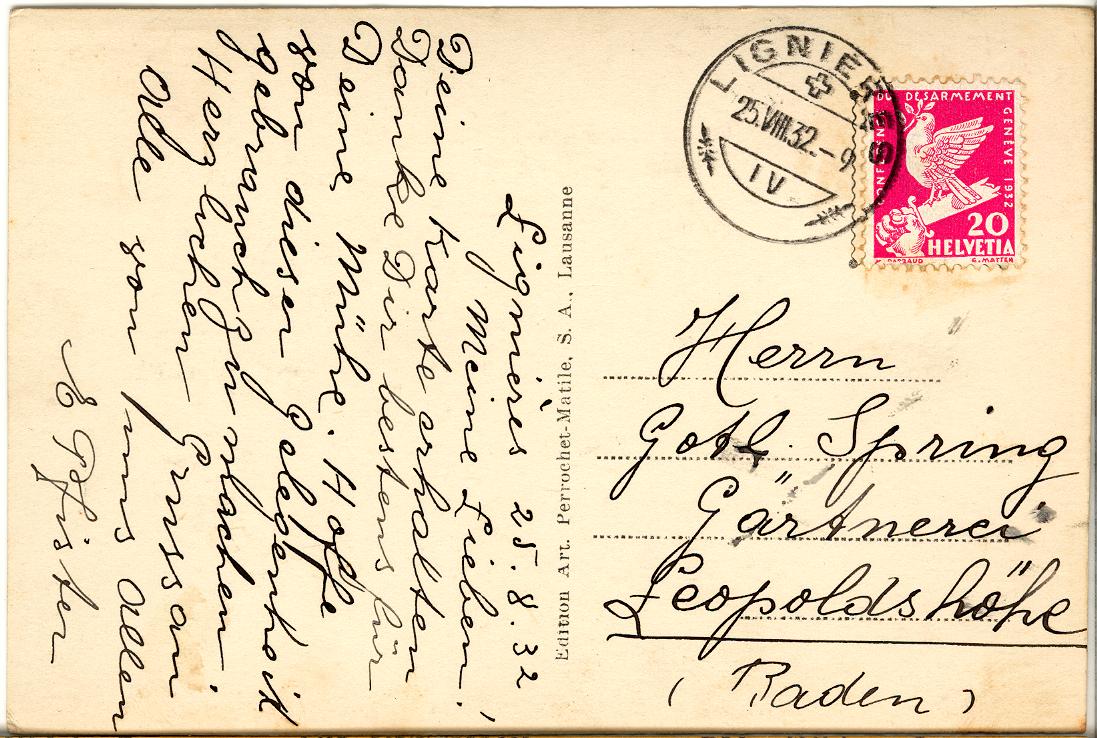 Lignières 25.8.32
Meine Lieben!
Deine Karte erhalten
Danke Dir bestens für
Deine Mühe. Hoffe
von dieser Gelegenheit
gebrauch zu machen.
Herzlichen Gruss an
alle von uns allen
E Pfister
Edition Art. Perrochet-Matile, S. A., Lausanne
LIGNIÈRES
25.VIII.32.-9
IV
DU DÉSARMEMENT
GENÈVE 1932
20
HELVETIA
G. MATTER
Herrn
Gotl. Spring
Gärtnerei
Leopoldshöhe
(Baden)